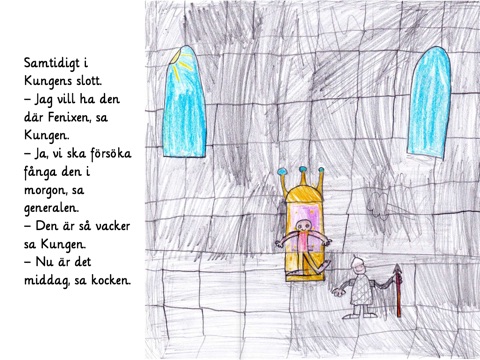 Samtidigt i
Kungens slott.
– Jag vill ha den
där Fenixen, sa
Kungen.
– Ja, vi ska försöka
fånga den i
morgon, sa
generalen.
– Den är så vacker
sa Kungen.
– Nu är det
middag, sa kocken.